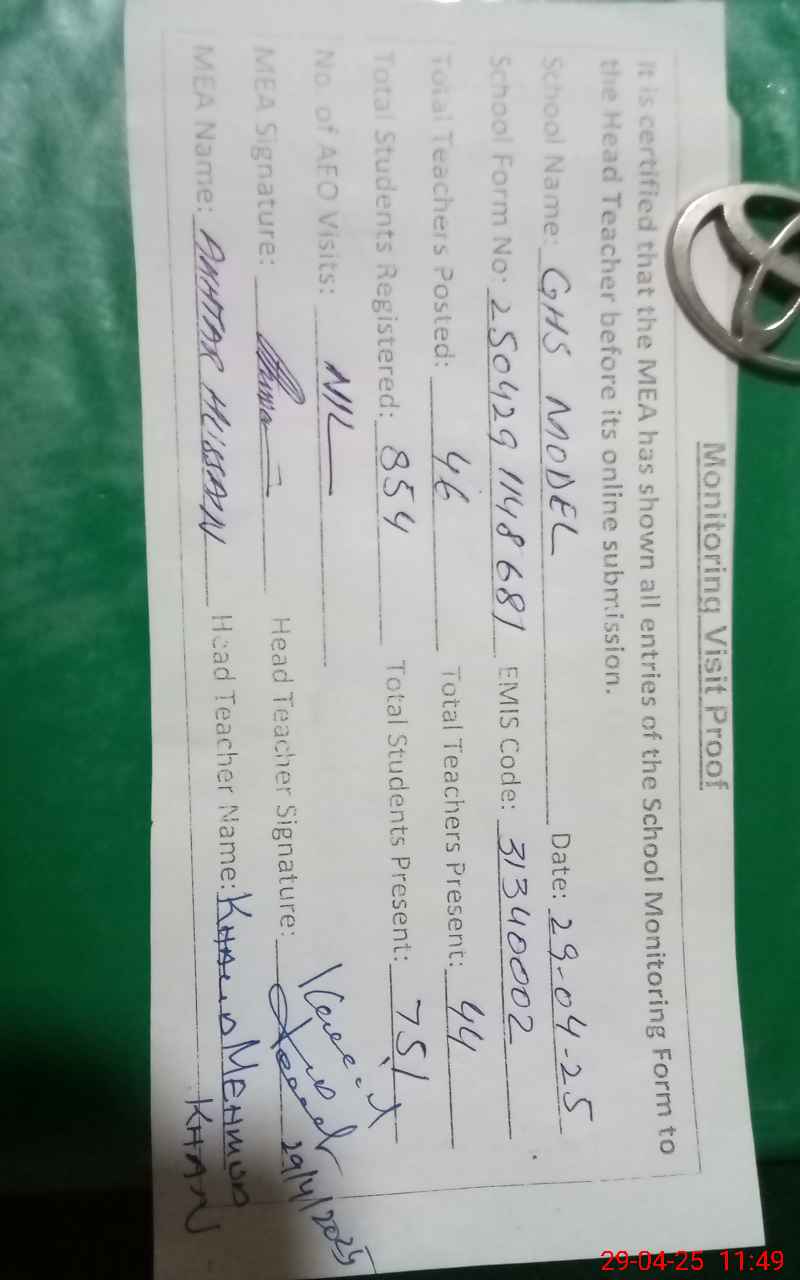 Monitoring Visit Proof
It is certified that the MEA has shown all entries of the School Monitoring Form to
the Head Teacher before its online submission.
School Name: GHS MODEL Date: 29-04-25
School Form No: 250429 1148 681 EMIS Code: 31340002
Total Teachers Posted: 46 Total Teachers Present: 44
Total Students Registered: 854 Total Students Present: 751
No. of AEO Visits: NIL
MEA Signature: Head Teacher Signature: 29/4/2025
MEA Name: AKHTAR HUSSAIN Head Teacher Name: KHALID MEHMOOD
KHAN
29-04-25 11:49